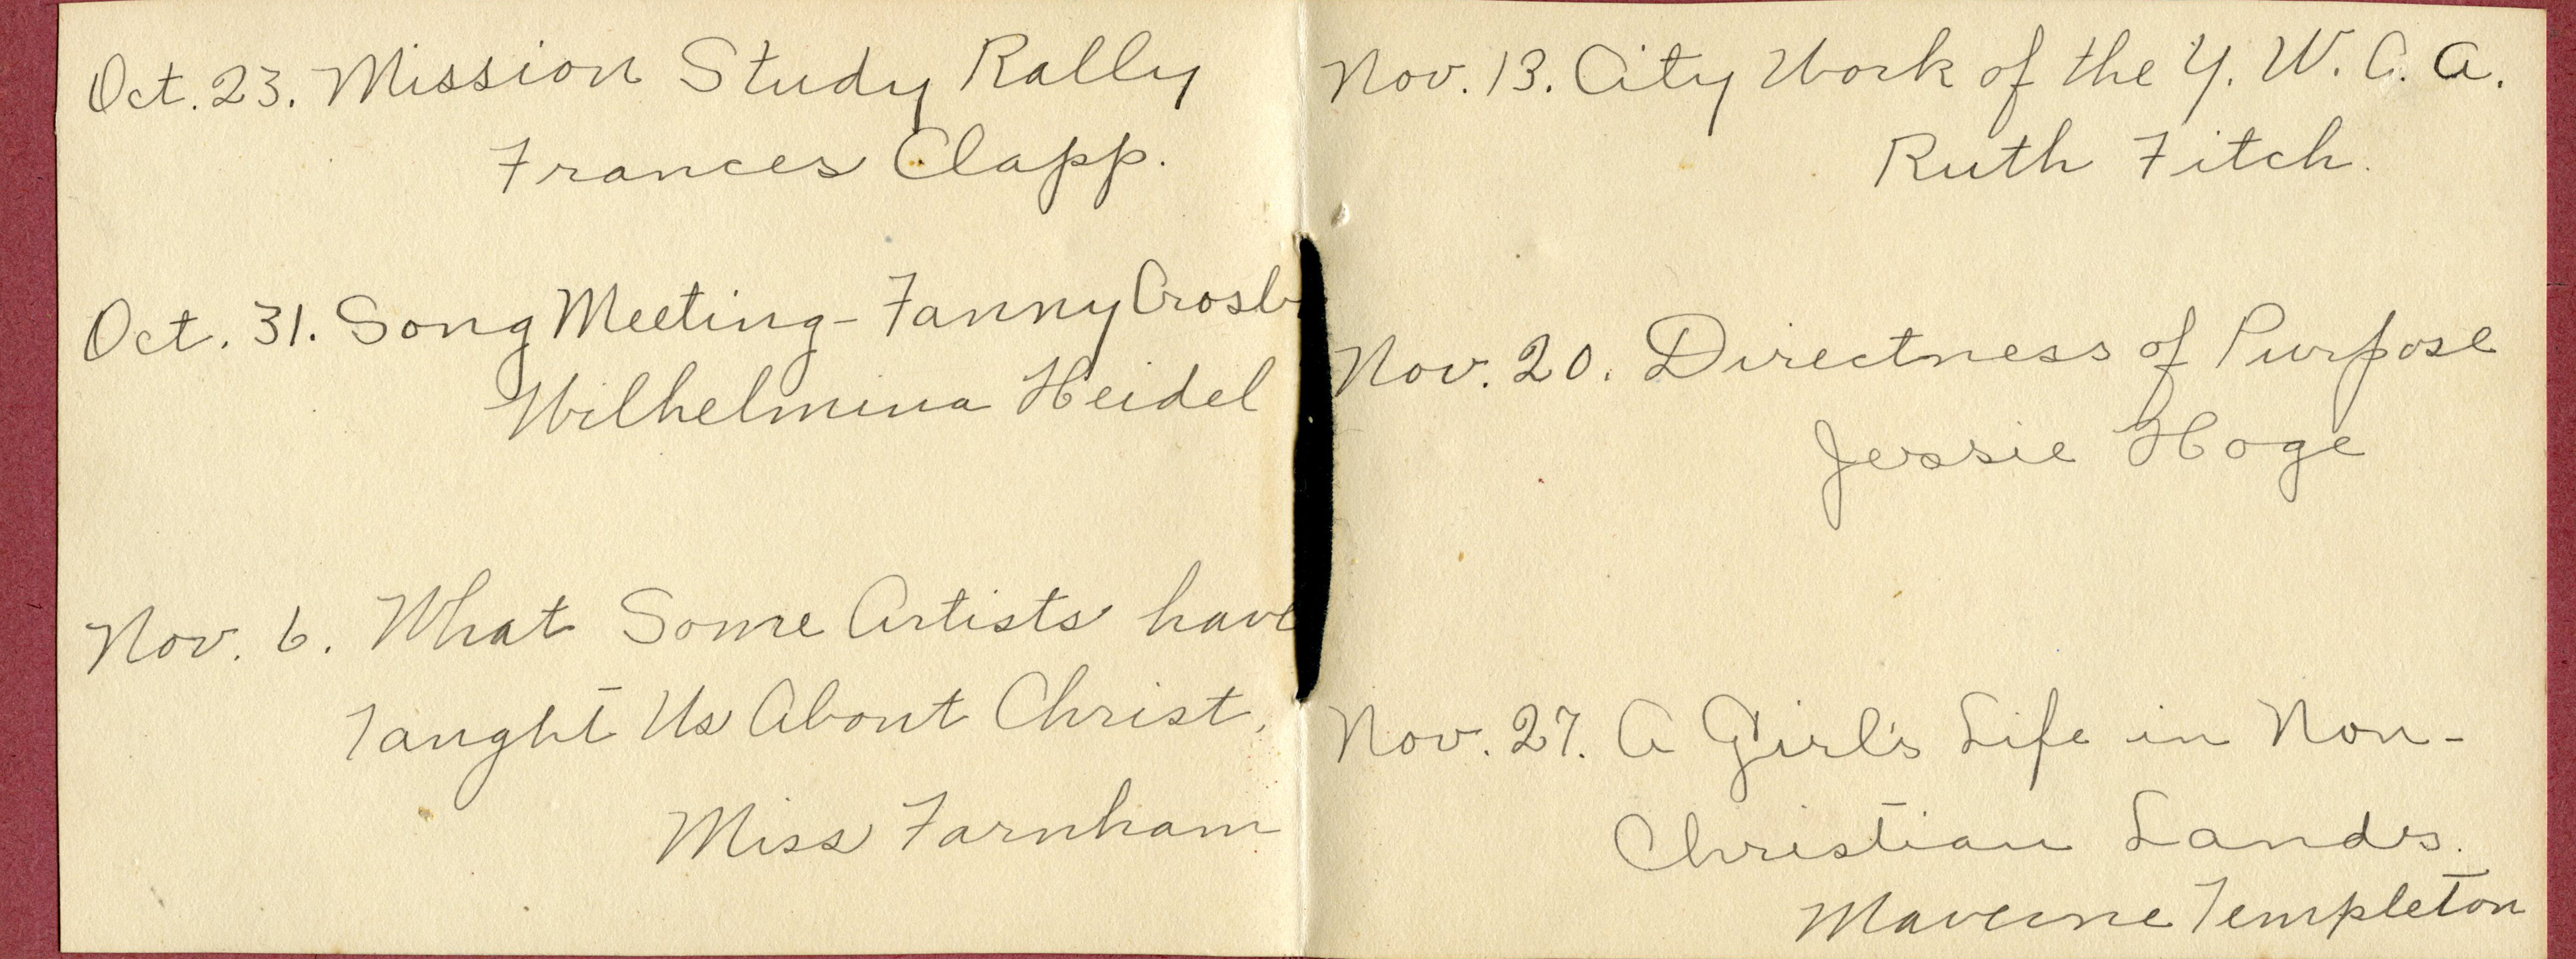 Oct. 23. Mission Study Rally
Frances Clapp.
Oct. 31. Song Meeting - Fanny Crosby
Wilhelmina Heidel
Nov. 6. What Some Artists have
Taught Us About Christ.
Miss Farnham
Nov. 13. City Work of the Y. W. C. A.
Ruth Fitch.
Nov. 20. Directness of Purpose
Jessie Hoge
Nov. 27. A Girl's Life in Non-
Christian Lands.
Templeton